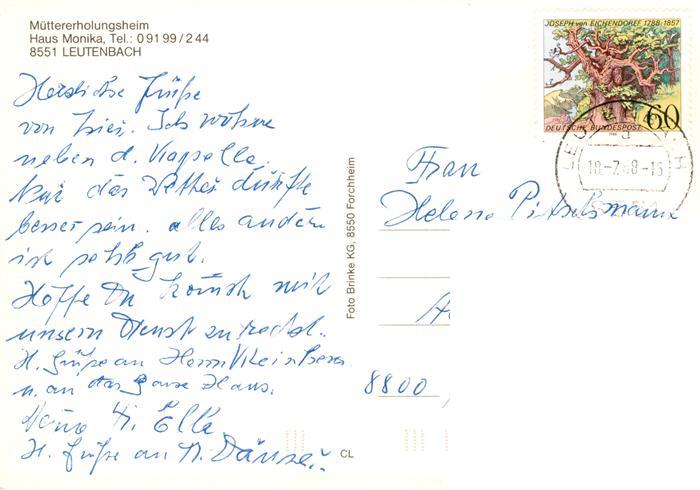 Müttererholungsheim
Haus Monika, Tel.: 0 91 99 / 2 44
8551 LEUTENBACH
Herzliche Grüße
von hier. Ich wohne
neben d. Kapelle.
Nur das Wetter dürfte
besser sein. alles andere
ist sehr gut.
Hoffe Du kommst mit
unserm Dienst zurecht.
H. Grüße an Herrn
u. an das ganze Haus.
Deine
H. Grüße an
Foto Brinke KG, 8550 Forchheim
CL
JOSEPH von EICHENDORFF 1788-1857
DEUTSCHE BUNDESPOST 60
18.-7.88-15
Frau
Helene
8800